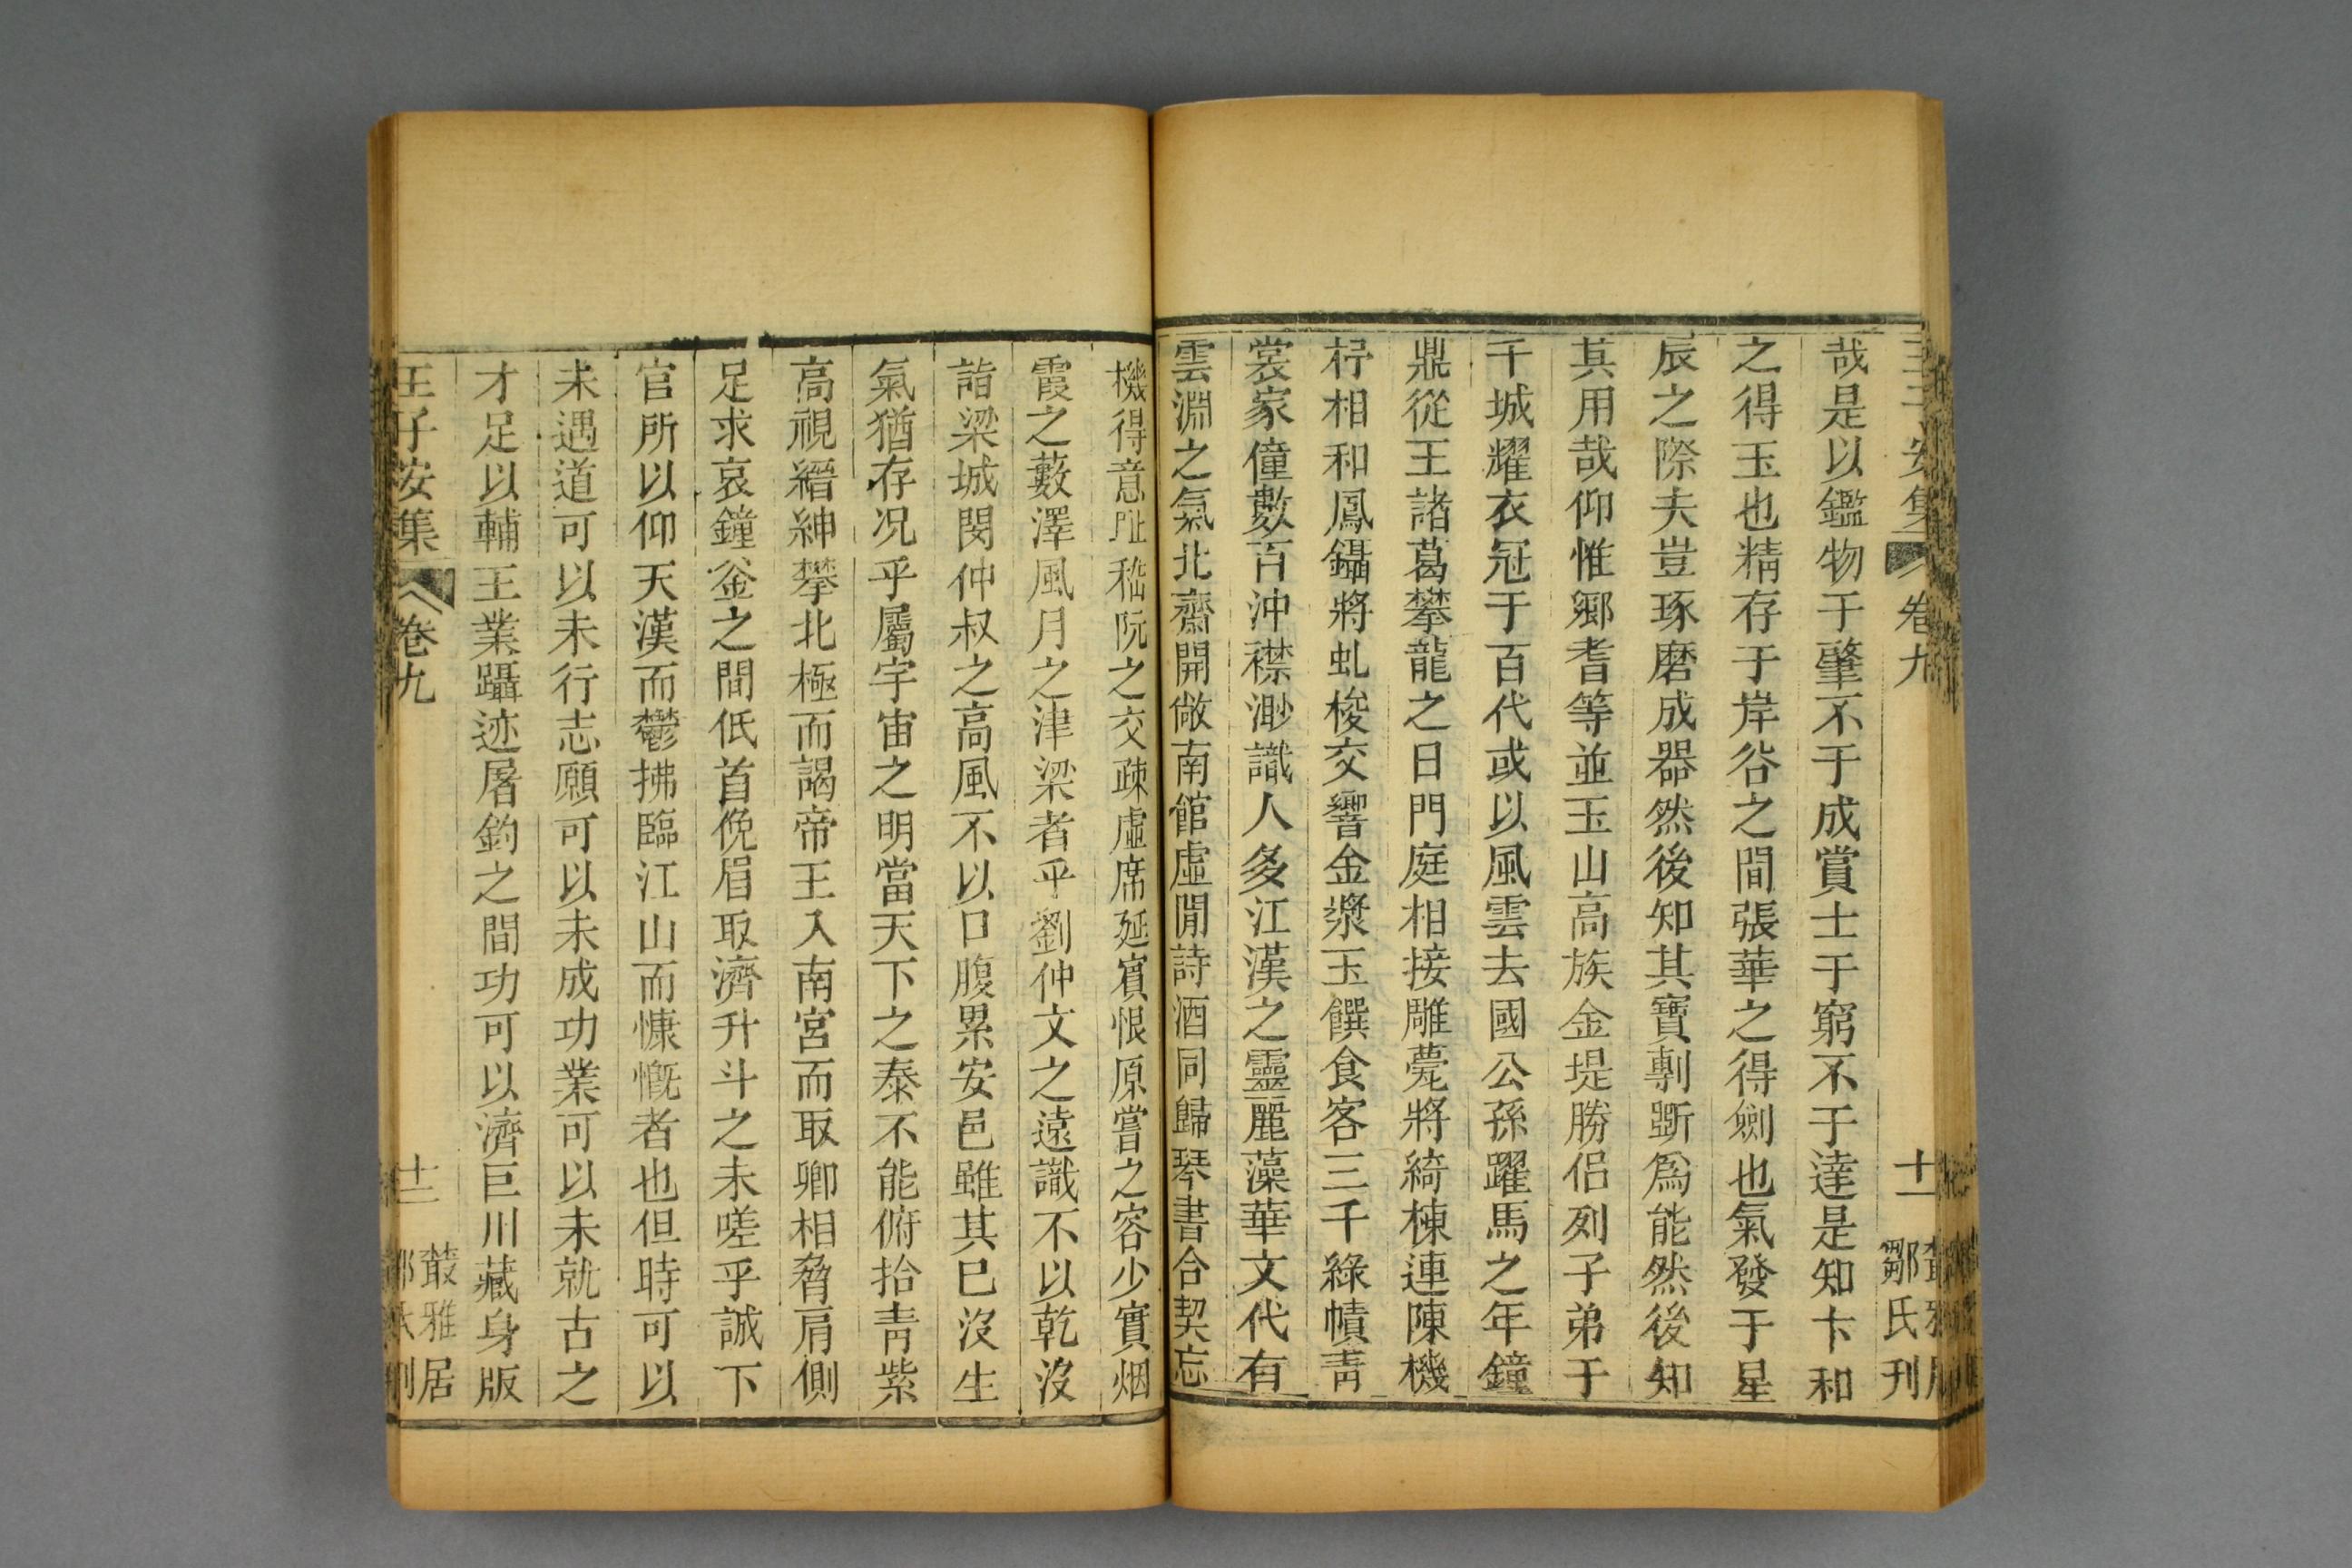 王子安集 卷九 十一 叢雅居 鄒氏刊
哉是以鑑物于肇不于成賞士于窮不于達是知卞和
之得玉也精存于岸谷之間張華之得劍也氣發于星
辰之際夫豈琢磨成器然後知其寶剸斷爲能然後知
其用哉仰惟鄉耆等並玉山高族金堤勝侶列子弟于
千城耀衣冠于百代或以風雲去國公孫躍馬之年鐘
鼎從王諸葛攀龍之日門庭相接雕甍將綺棟連陳機
杼相和鳳鑷將虬梭交響金漿玉饌食客三千綠幘青
裳家僮數百沖襟渺識人多江漢之靈麗藻華文代有
雲淵之氣北齋開敞南館虛閒詩酒同歸琴書合契忘
機得意阯嵇阮之交疎虛席延賓恨原嘗之容少實烟
霞之藪澤風月之津梁者乎劉仲文之遠識不以乾沒
詣梁城閔仲叔之高風不以口腹累安邑雖其已沒生
氣猶存况乎屬宇宙之明當天下之泰不能俯拾青紫
高視縉紳攀北極而謁帝王入南宮而取卿相脅肩側
足求哀鐘釜之間低首俛眉取濟升斗之未嗟乎誠下
官所以仰天漢而鬱拂臨江山而慷慨者也但時可以
未遇道可以未行志願可以未成功業可以未就古之
才足以輔王業躡迹屠釣之間功可以濟巨川藏身版
王子安集 卷九 十二 叢雅居 鄒氏刊